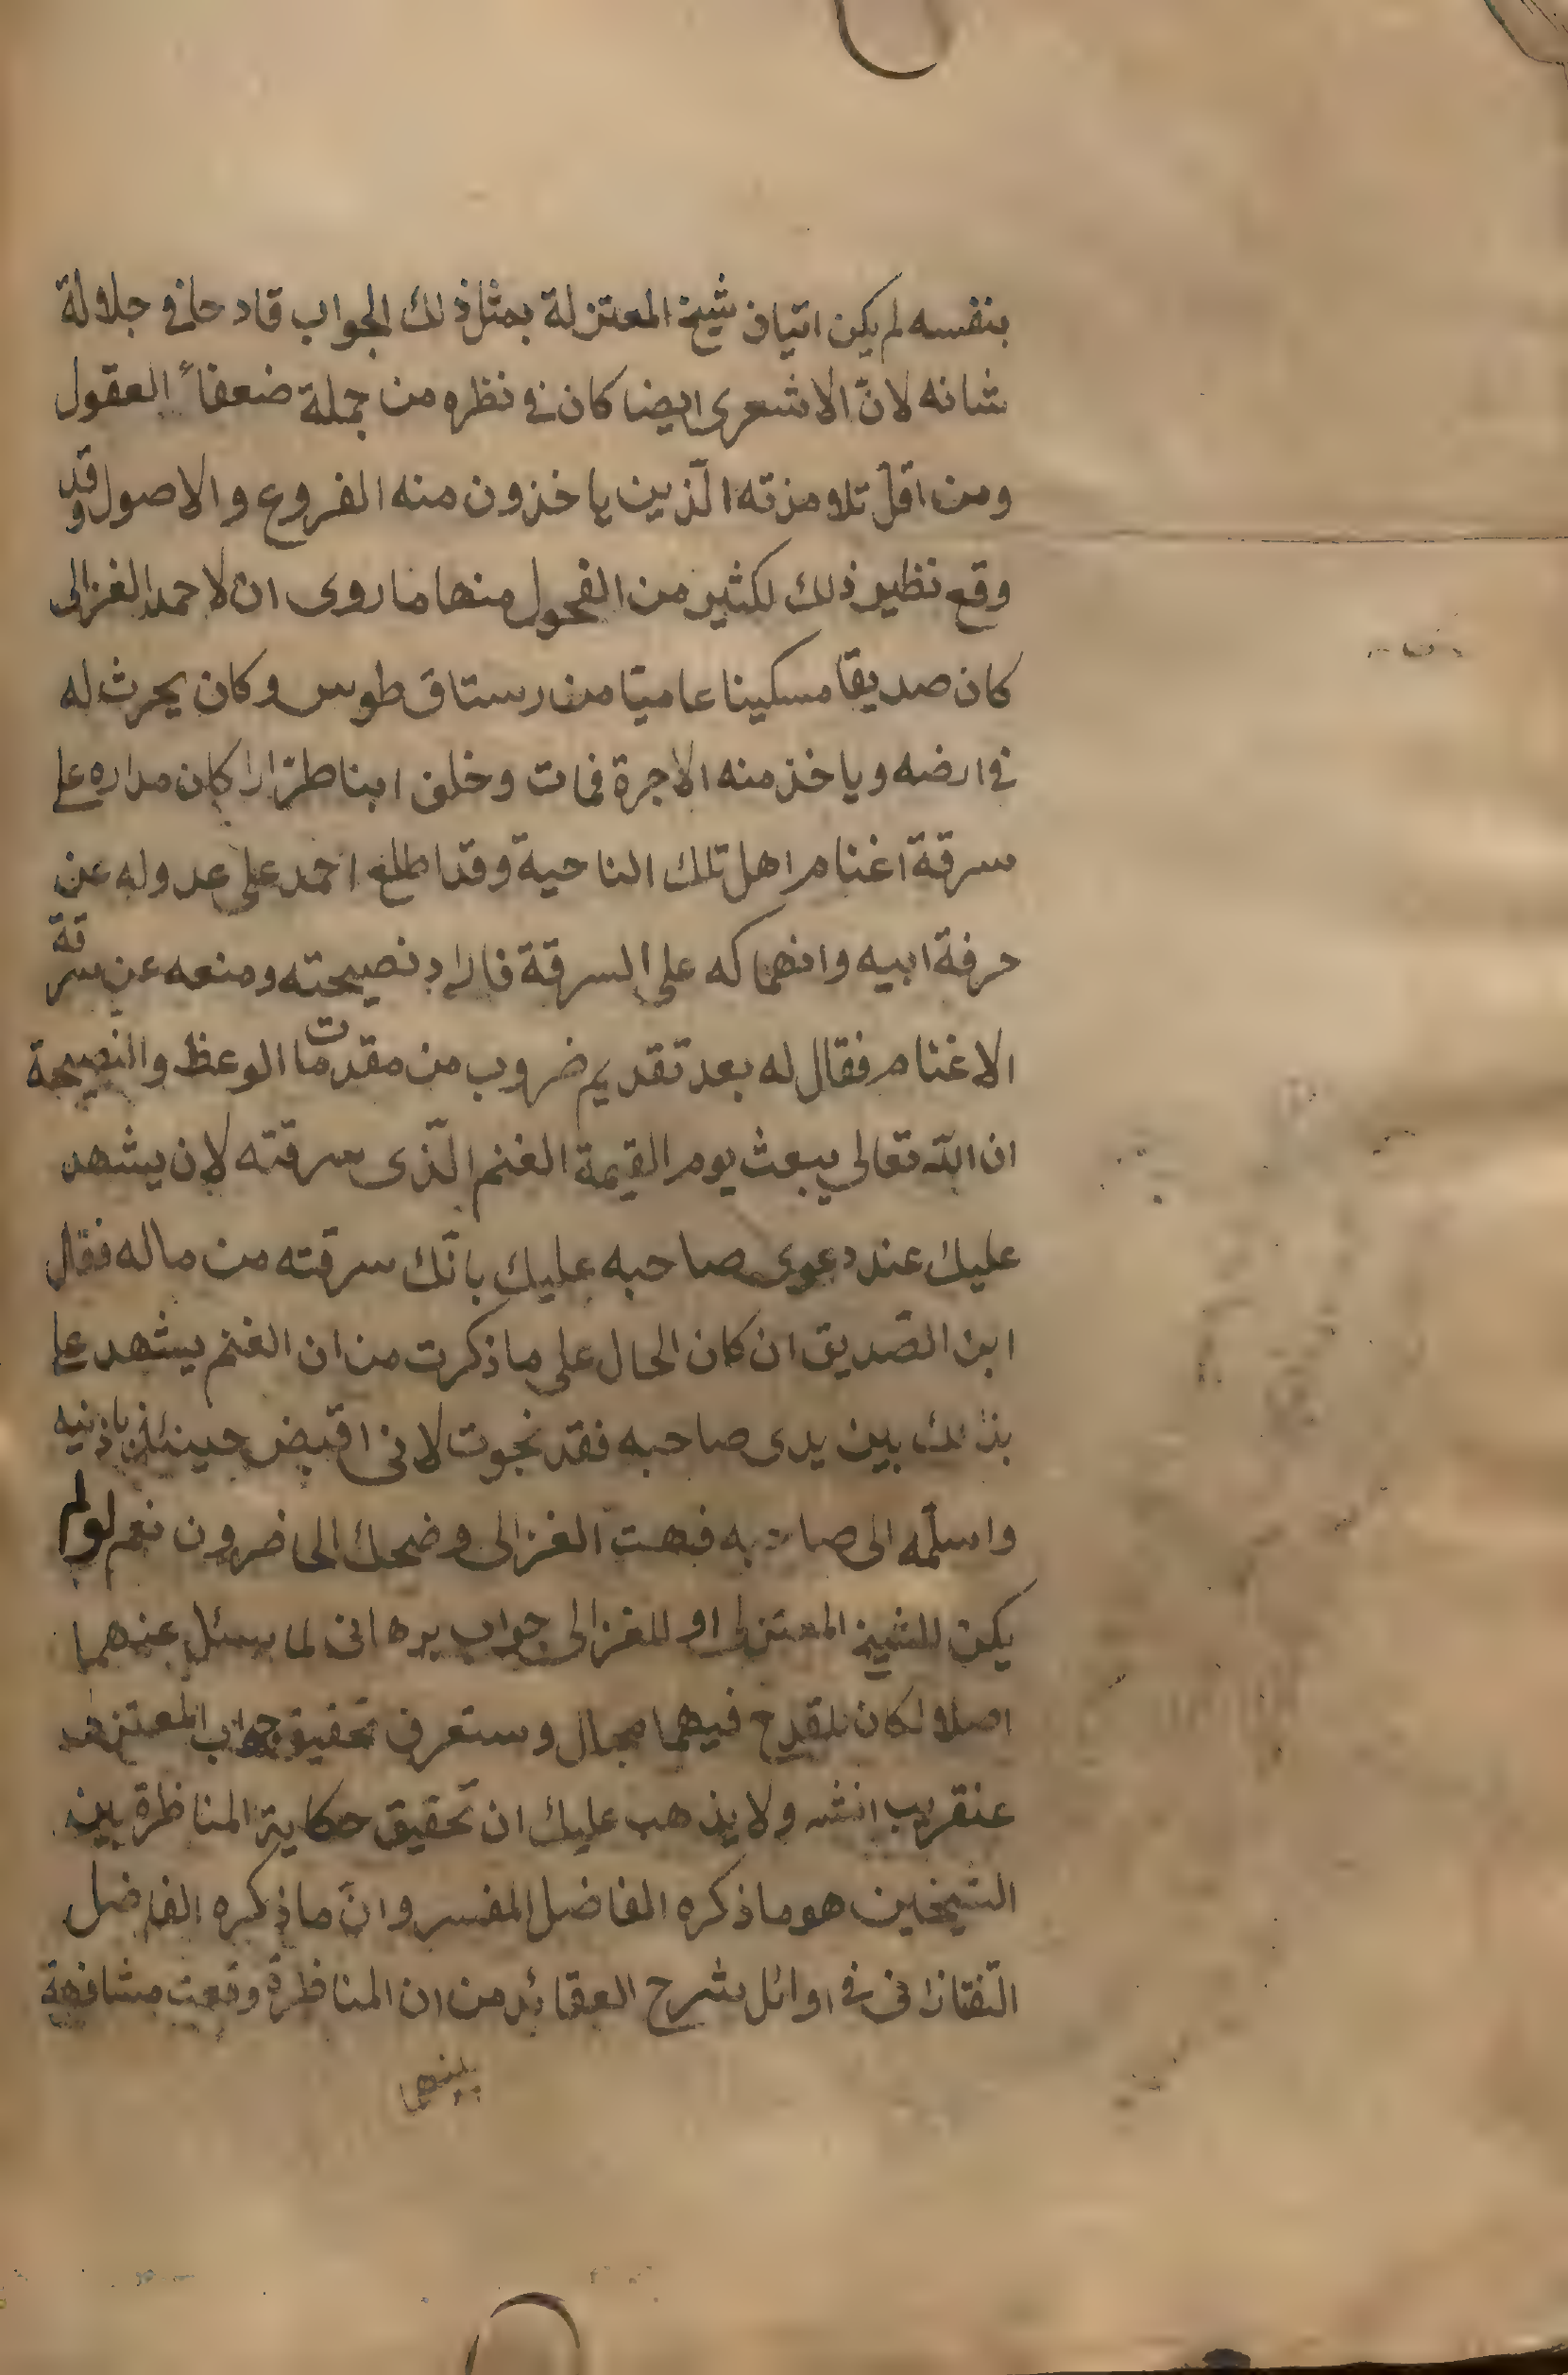 بنفسه لم يكن اتيان شيخ المعتزلة بمثل ذلك الجواب قادحا في جلالة
شانه لانّ الاشعرى ايضا كان في نظره من جملة ضعفاء العقول
ومن اقلّ تلامذته الّذين ياخذون منه الفروع والاصول وقد
وقع نظير ذلك لكثير من الفحول منها ما روى ان لاحمد الغزالى
كان صديقا مسكينا عاميّا من رستاق طوس وكان يحرث له
في ارضه وياخذ منه الاجرة فمات وخلف ابنا طرّارا كان مداره على
سرقة اغنام اهل تلك الناحية وقد اطلع احمد على عدوله عن
حرفة ابيه وانهماكه على السرقة فاراد نصيحته ومنعه عن سرقة
الاغنام فقال له بعد تقديم ضروب من مقدمات الوعظ والنّصيحة
ان الله تعالى يبعث يوم القيمة الغنم الّذى سرقته لان يشهد
عليك عند دعوى صاحبه عليك بانّك سرقته من ماله فقال
ابن الصّديق ان كان الحال على ما ذكرت من ان الغنم يشهد على
بذلك بين يدى صاحبه فقد نجوت لانى اقبض حينئذ باذنيه
واسلّمه الى صاحبه فبهت الغزالى وضحك الحاضرون نعم لو لم
يكن للشيخ المعتزلى او للغزالى جواب برهانى لما يسئل عنهما
اصلا لكان للقدح فيهما مجال وستعرف تحقيق جواب المعتزلى
عنقريب انشه ولا يذهب عليك ان تحقيق حكاية المناظرة بين
الشيخين هو ما ذكره الفاضل المفسر وانّ ما ذكره الفاضل
التّفتازانى في اوائل شرح العقائد من ان المناظرة وقعت مشافهة
بينهما